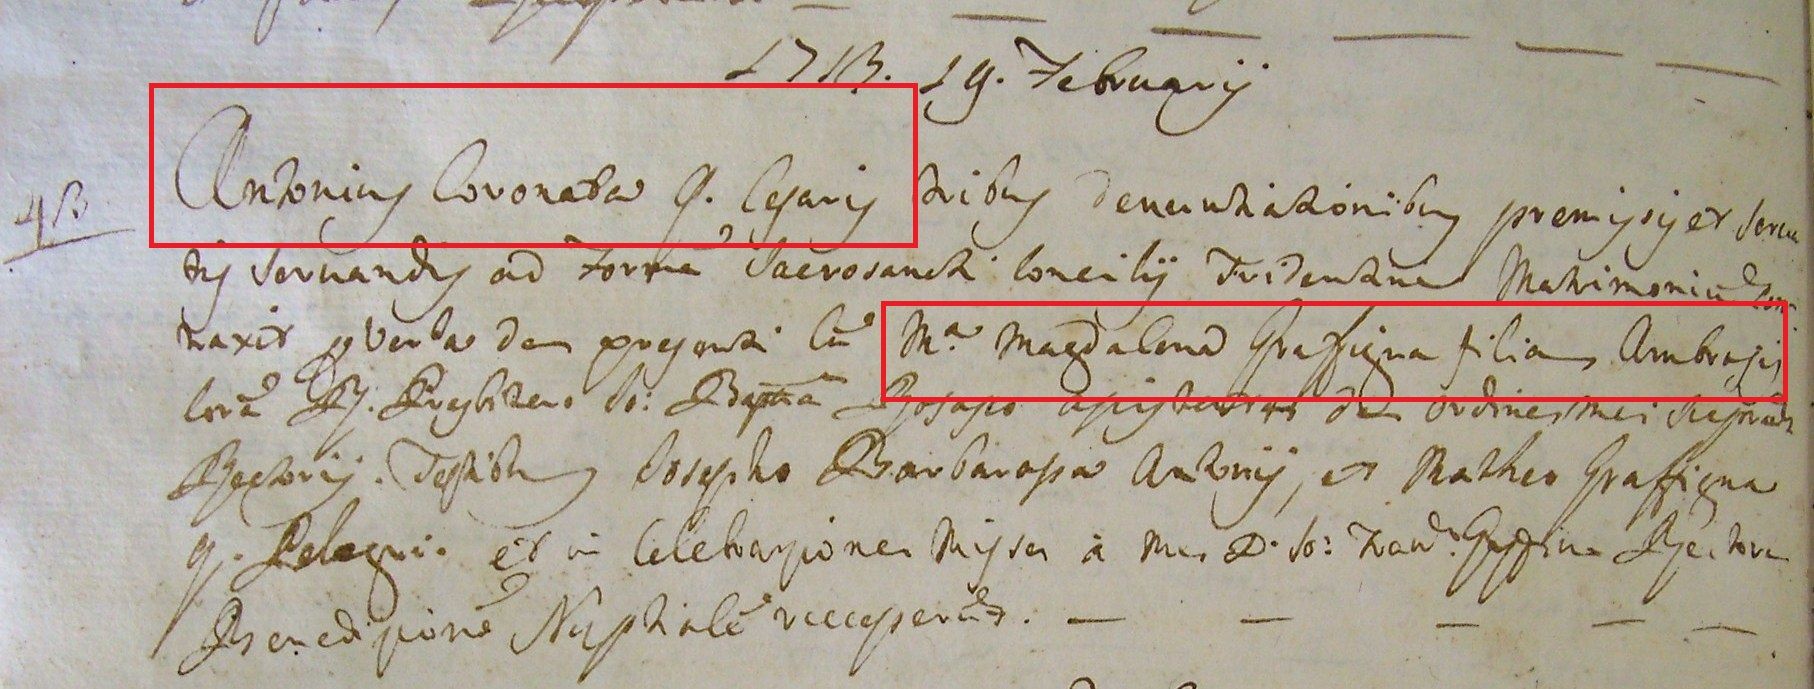 1713. 19. Februarij
Antonius Coronata q. Cesaris tribus denuntiationibus premissis et serua
tis seruandis ad formã Sacrosancti Concilij Tridentini Matrimoniũ con
traxit p verba de presenti cũ Mª. Magdalena Graffigna filia Ambrosij
corã R. Presbitero Jo: Bapta de ordine mei
Rectoris. Testibus Josepho Barbarossa Antonij, et Matheo Graffigna
q. Pelegri. et in Celebratione Misse à me D. Jo: Rectore
Benedictionẽ Nuptialẽ receperũt.